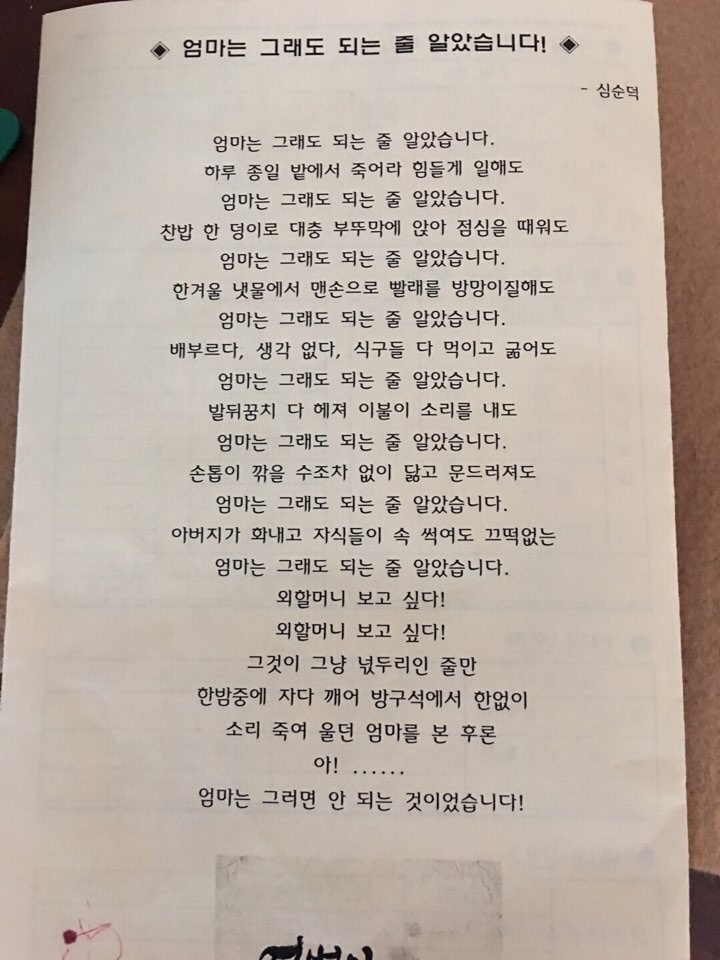 ◈ 엄마는 그래도 되는 줄 알았습니다! ◈
- 심순덕
엄마는 그래도 되는 줄 알았습니다.
하루 종일 밭에서 죽어라 힘들게 일해도
엄마는 그래도 되는 줄 알았습니다.
찬밥 한 덩이로 대충 부뚜막에 앉아 점심을 때워도
엄마는 그래도 되는 줄 알았습니다.
한겨울 냇물에서 맨손으로 빨래를 방망이질해도
엄마는 그래도 되는 줄 알았습니다.
배부르다, 생각 없다, 식구들 다 먹이고 굶어도
엄마는 그래도 되는 줄 알았습니다.
발뒤꿈치 다 헤져 이불이 소리를 내도
엄마는 그래도 되는 줄 알았습니다.
손톱이 깎을 수조차 없이 닳고 문드러져도
엄마는 그래도 되는 줄 알았습니다.
아버지가 화내고 자식들이 속 썩여도 끄떡없는
엄마는 그래도 되는 줄 알았습니다.
외할머니 보고 싶다!
외할머니 보고 싶다!
그것이 그냥 넋두리인 줄만
한밤중에 자다 깨어 방구석에서 한없이
소리 죽여 울던 엄마를 본 후론
아! ......
엄마는 그러면 안 되는 것이었습니다!